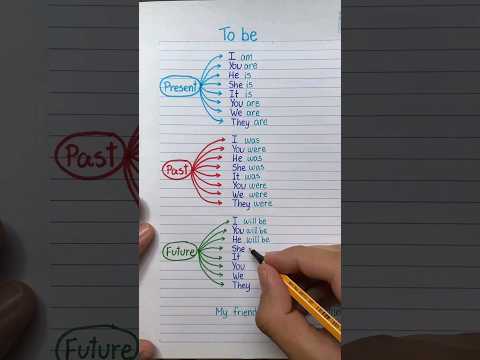 To be
Present
I am
You are
He is
She is
It is
You are
We are
They are
Past
I was
You were
He was
She was
It was
You were
We were
They were
Future
I will be
You will be
He will be
She
It
You
We
They
My friend
Past
Future